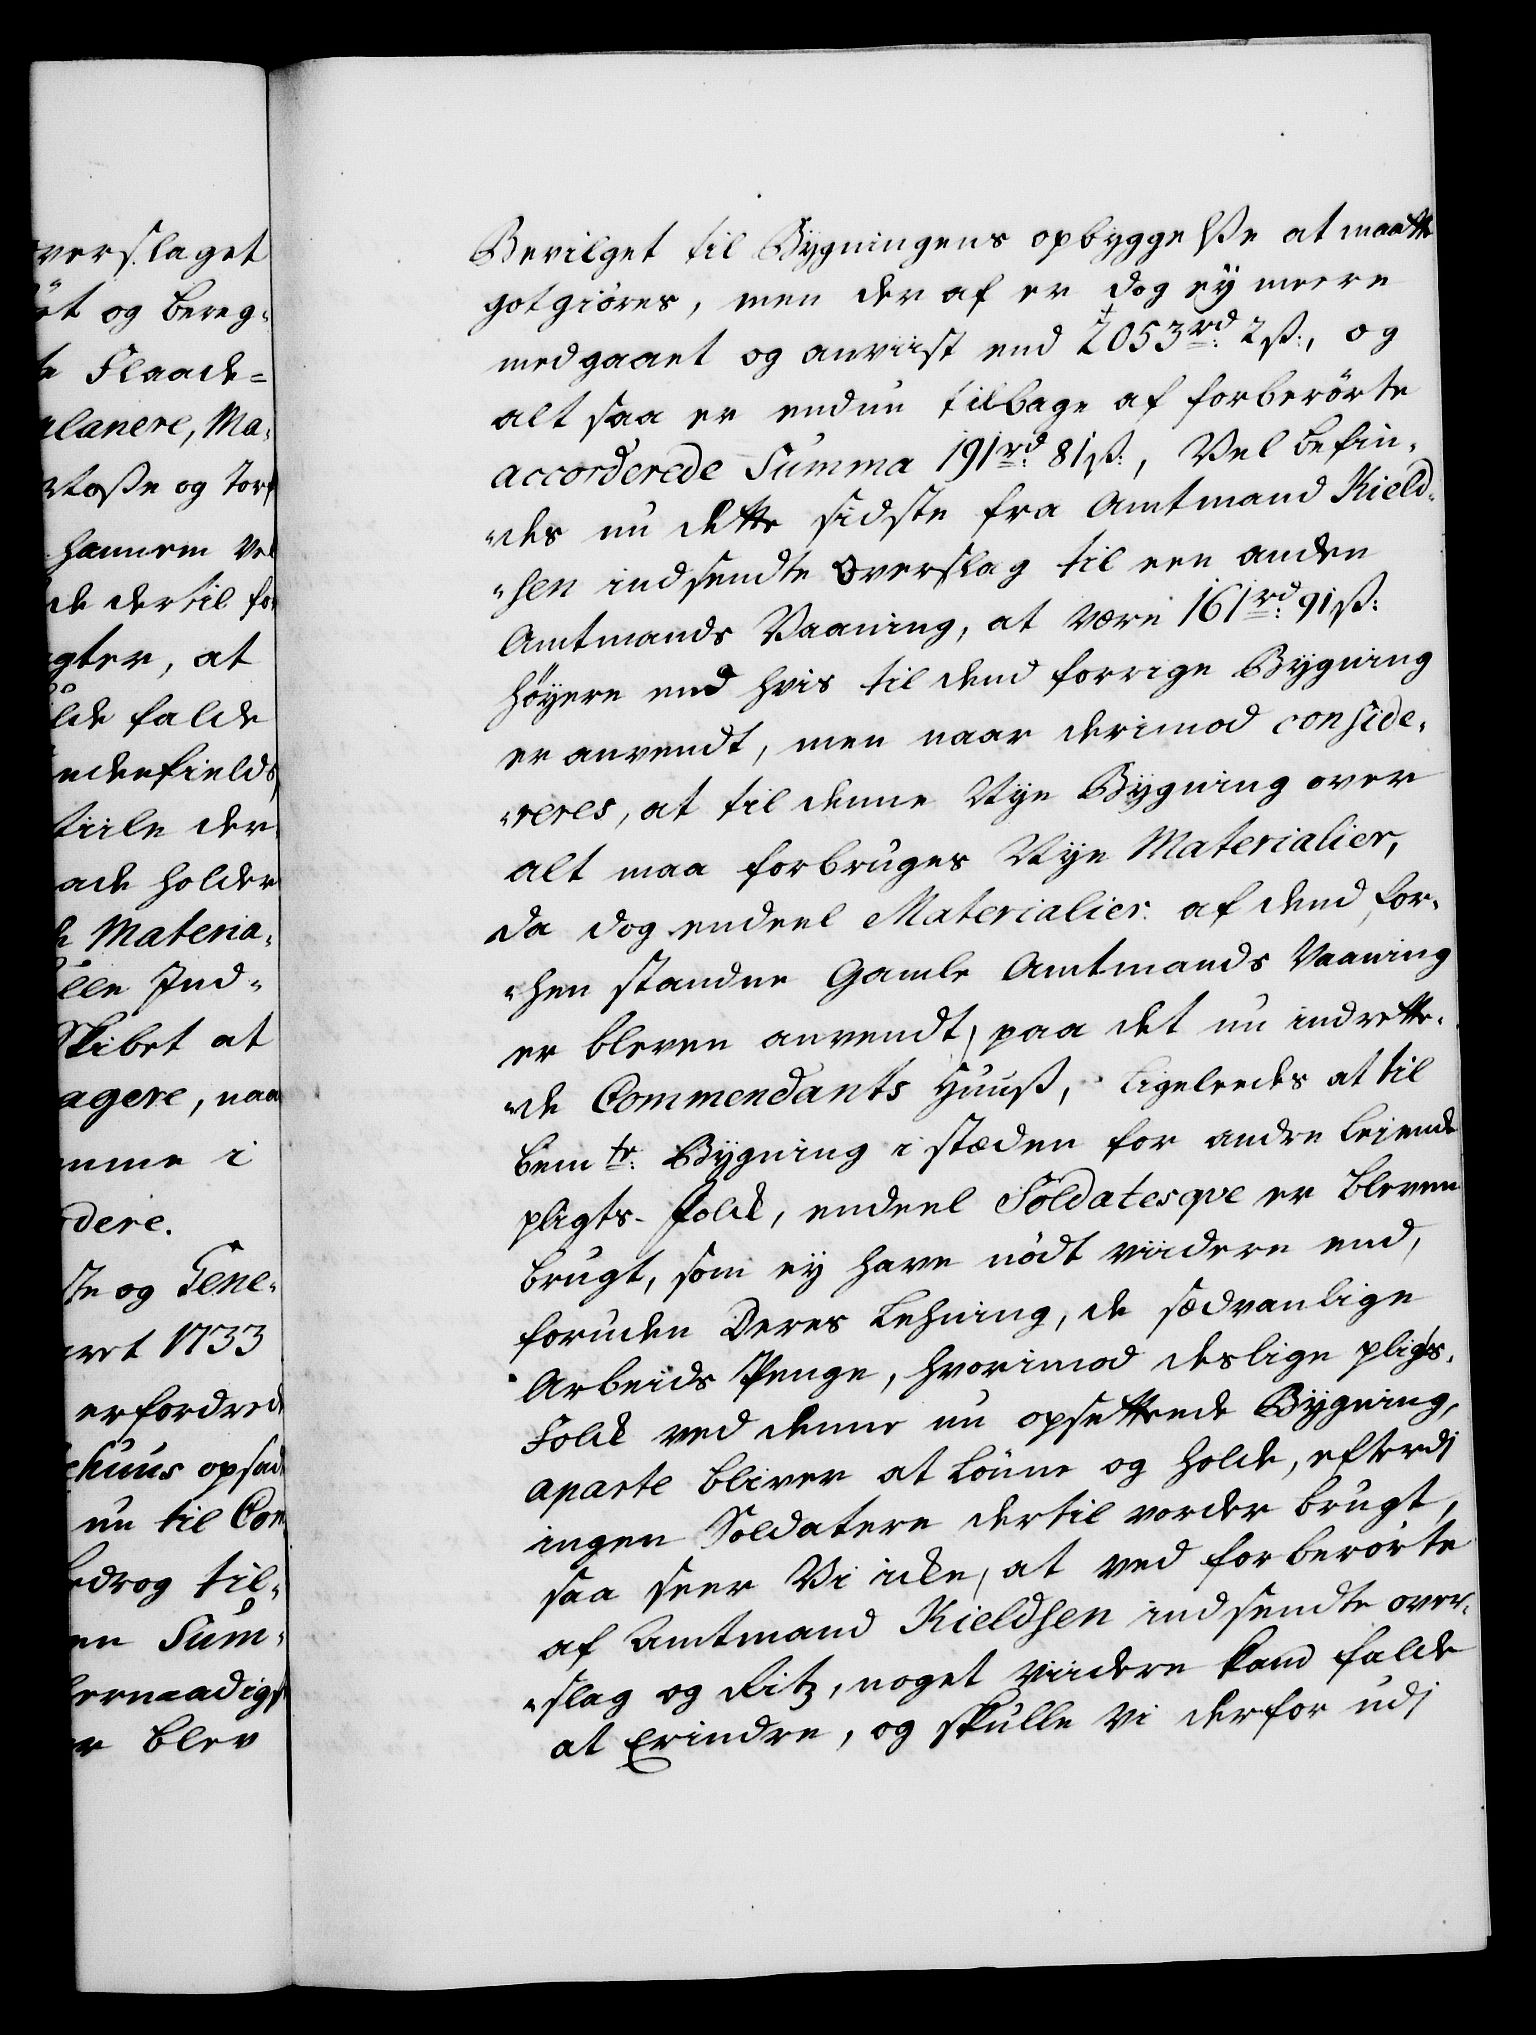 verslaget
et og bereg¬
te Flaade=
planere, Ma¬
Moße og Torf
hannem vel
de dertil for
gter, at
ulde falde
ndenfields
tiile der
ade holder
de Materia¬
ulle Ind¬
Skibet at
agere, naar
omme i
dere.
ste og Gene¬
aret 1733
erfordred
ehuus opsad
nu til Com
bedrog til¬
en Sum¬
lernaadigst
er blev
Bevilget til Bygningens opbyggelße at maatte
gotgiöres, men der af er dog ey meere
medgaaet og anviist end 2053rd: 2ß:, og
alt saa er endnu tilbage af forberörte
accorderede Summa 191rd: 81ß:, Vel befin¬
"des nu dette sidste fra Amtmand Kield¬
"sen indsendte Overslag til een anden
Amtmands Vaaning, at være 161rd: 91ß:
höyere end hvis til dend forrige Bygning
er anvendt, men naar derimod conside¬
"reres, at til denne Nye Bygning over
alt maa forbruges Nye Materialier,
da dog endeel Materialier af dend for¬
"hen standne Gamle Amtmands Vaaning
er bleven anvendt, paa det nu indrette¬
"de Commendants Huuß, ligeleedes at til
bemte: Bygning i stæden for andre leiende
pligts-Folck, endeel Soldatesqve er bleven
brugt, som ey have nödt viidere end,
foruden Deres Lehning, de sædvanlige
Arbeids Penge, hvorimod deslige pligts¬
Folck ved denne nu opsettende Bygning,
aparte bliver at lönne og holde, efterdj
ingen Soldatere dertil vorder brugt,
saa seer Vi icke, at ved forberörte
af Amtmand Kieldsen indsendte over¬
"slag og Ritz, noget viidere kand falde
at Erindre, og skulle Vi derfor udj